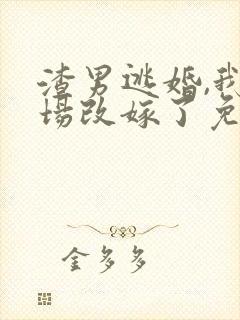 渣男逃婚,我
场改嫁了免
金多多